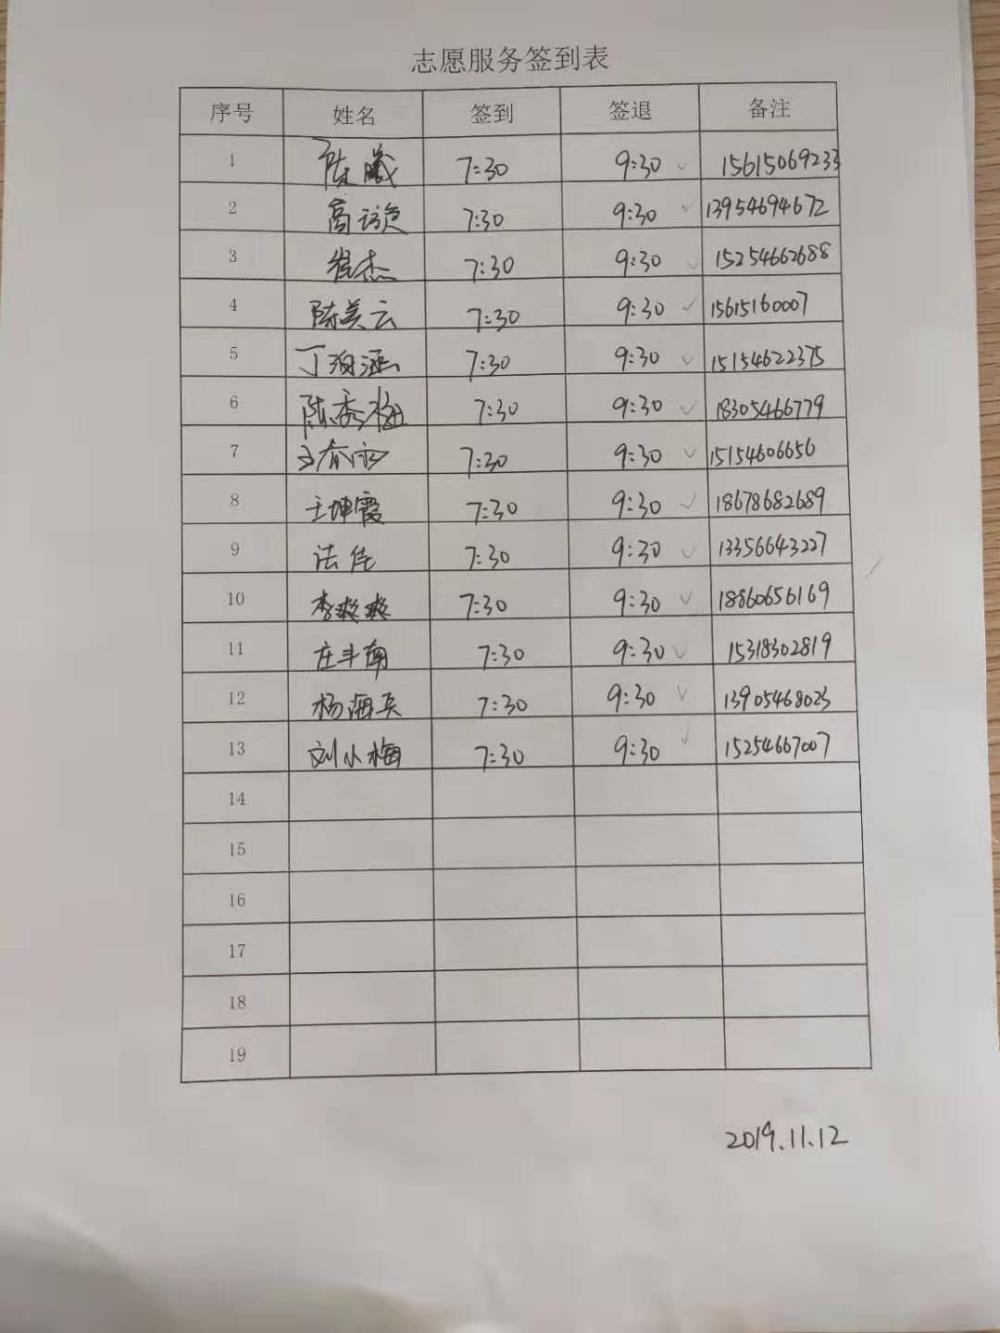 志愿服务签到表
序号 姓名 签到 签退 备注
1 陈曦 7:30 9:30 ✓ 15615069233
2 高 7:30 9:30 ✓ 13954694672
3 崔杰 7:30 9:30 ✓ 15254662688
4 陈美云 7:30 9:30 ✓ 15615160007
5 丁海涵 7:30 9:30 ✓ 15154622375
6 陈秀梅 7:30 9:30 ✓ 18305466779
7 7:30 9:30 ✓ 15154606656
8 王坤霞 7:30 9:30 ✓ 18678682689
9 法佳 7:30 9:30 ✓ 13356643227
10 李爽爽 7:30 9:30 ✓ 18860656169
11 庄斗南 7:30 9:30 ✓ 15318302819
12 杨海兵 7:30 9:30 ✓ 13905468023
13 刘小梅 7:30 9:30 ✓ 15254667007
14
15
16
17
18
19
2019.11.12